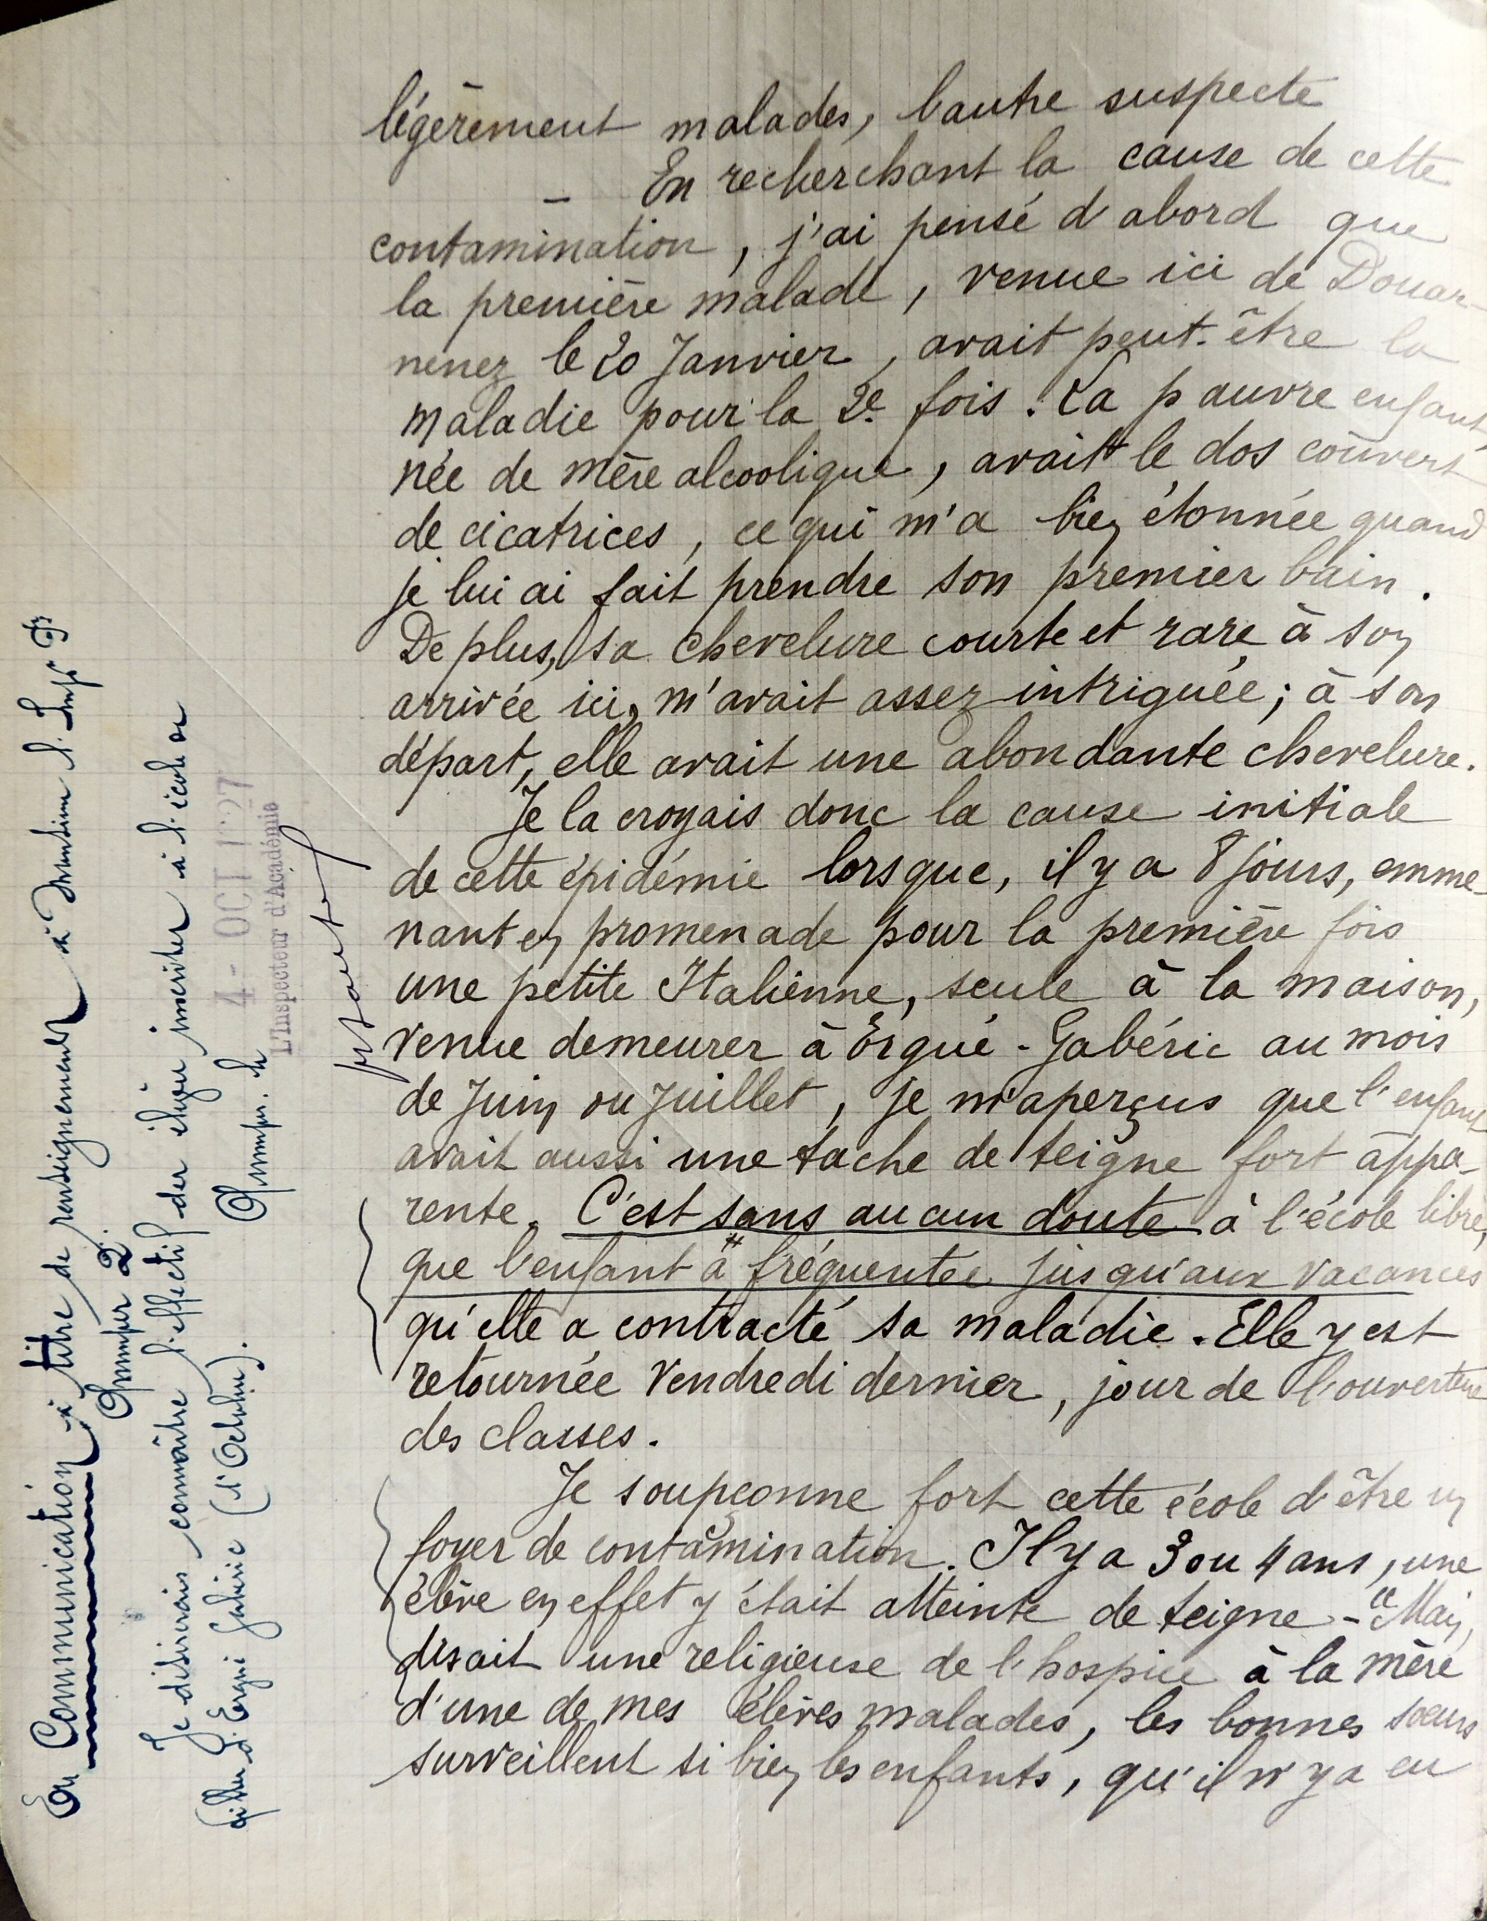 légèrement malades, l'autre suspecte
— En recherchant la cause de cette
contamination, j'ai pensé d'abord que
la première malade, venue ici de Douar-
nenez le 20 Janvier, avait peut-être la
maladie pour la 2e fois. La pauvre enfant,
née de mère alcoolique, avait le dos couvert
de cicatrices, ce qui m'a bien étonnée quand
je lui ai fait prendre son premier bain.
De plus, sa chevelure courte et rare à son
arrivée ici, m'avait assez intriguée; à son
départ, elle avait une abondante chevelure.
Je la croyais donc la cause initiale
de cette épidémie lorsque, il y a 8 jours, emme-
nant en promenade pour la première fois
une petite Italienne, seule à la maison,
venue demeurer à Ergué-Gabéric au mois
de Juin ou Juillet, je m'aperçus que l'enfant
avait aussi une tache de teigne fort appa-
rente. C'est sans aucun doute à l'école libre,
que l'enfant a fréquentée jusqu'aux vacances
qu'elle a contracté sa maladie. Elle y est
retournée Vendredi dernier, jour de l'ouverture
des classes.
Je soupçonne fort cette école d'être un
foyer de contamination. Il y a 3 ou 4 ans, une
élève en effet y était atteinte de teigne - "Mais,
disait une religieuse de l'hospice à la mère
d'une de mes élèves malades, les bonnes soeurs
surveillent si bien les enfants, qu'il n'y a eu
En Communication à titre de renseignements à
Quimper 2.
Je désirerais connaître l'effectif des élèves inscrites à l'école
d'Ergué Gabéric (1er Octobre).
Quimper, le
4 - OCT 1927
L'Inspecteur d'Académie